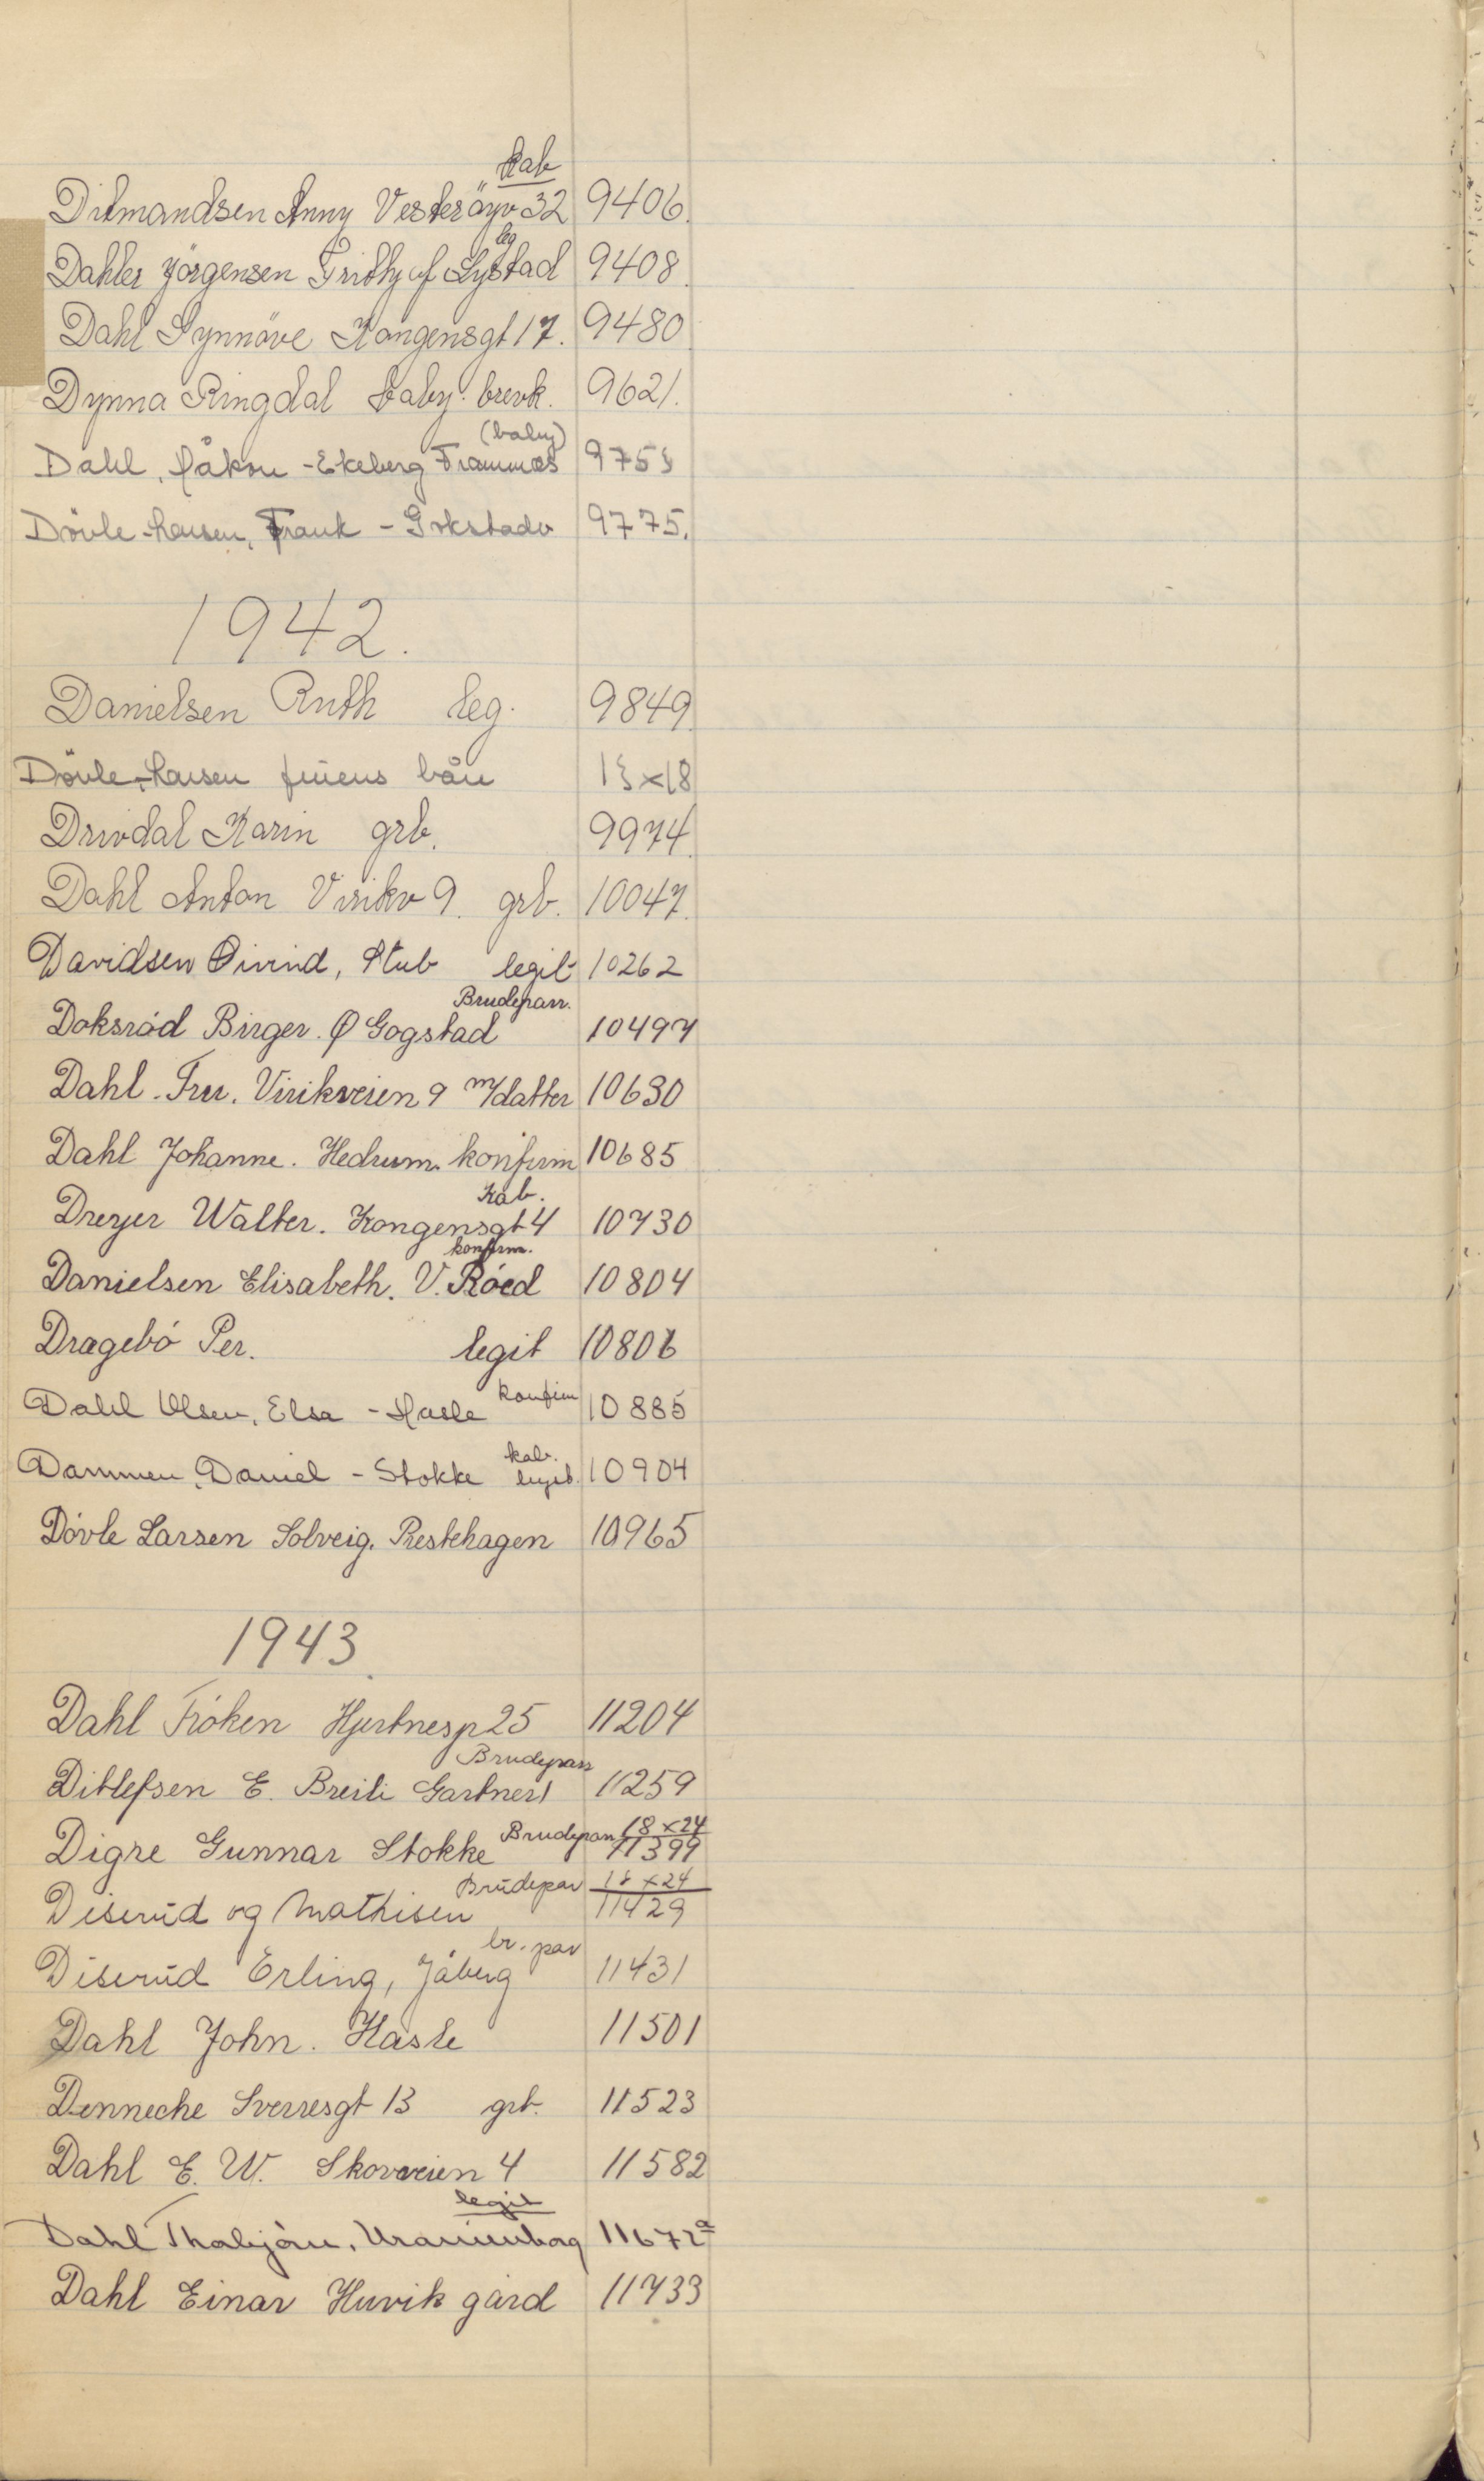 kab
Ditmandsen Anny Vesterøyv 32 9406.
leg
Dahler Jörgensen Fridtjuf Lystad 9408.
Dahl Synnöve Kongensgt 17. 9480
Dynna Ringdal baby. brevk. 9621.
(baby)
Dahl, Håkon - Ekeberg Framnæs 9753
Dövle-Larsen, Frank - Gokstadv 9775.
1942.
Danielsen Ruth leg. 9849.
Dövle-Larsen 13x18
Drivdal Karin grb. 9974.
Dahl Anton Virikv 9. grb. 10047.
Davidsen Øivind, Stub legit 10262
Brudeparr.
Doksród Birger. Ø Gogstad 10497
Dahl. Fru. Virikveien 9 m/datter 10630
Dahl Johanne. Hedrum. konfirm 10685
Kab.
Dreyer Walter. Kongensgt 4 10730
konfirm.
Danielsen Elisabeth. V. Róed 10804
Dragebó Per. legit 10806
Dahl Olsen, Elsa - Hasle konfirm 10885
kab.
Dammen, Daniel - Stokke legit. 10904
Dóvle Larsen Solveig. Prestehagen 10965
1943.
Dahl Fróken Hjertnesp 25 11204
Brudeparr
Ditlefsen E. Breili Gartneri 11259
Brudeparr 18x24
Digre Gunnar Stokke 11399
Brudepar 18x24
Diserud og Mathisen 11429
br. par
Diserud Erling, Jåberg 11431
Dahl John. Hasle 11501
Denneche Sverresgt 13 grb. 11523
Dahl E. W. Skovveien 4 11582
legit
Dahl Thorbjórn, Uranienborg 11672a
Dahl Einar Huvik gård 11733